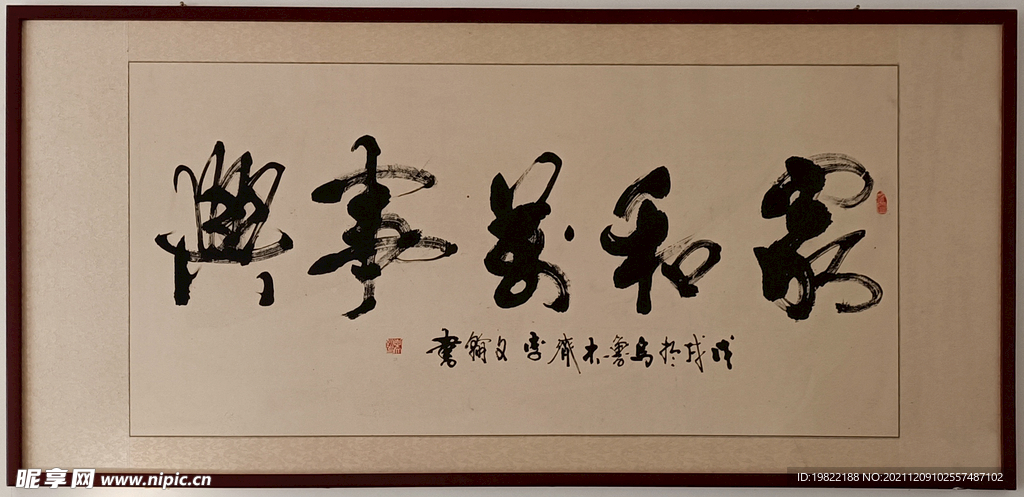 家和萬事興
戊戌於烏魯木齊李文翰書
昵享网 www.nipic.cn
ID:19822188 NO:20211209102557487102